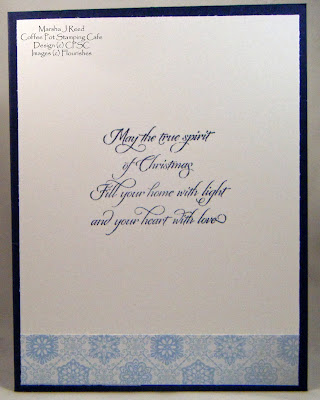 Marsha J Reed
Coffee Pot Stamping Cafe
Design (c) CPSC
Images (c) Flourishes
May the true spirit
of Christmas
Fill your home with light
and your heart with love